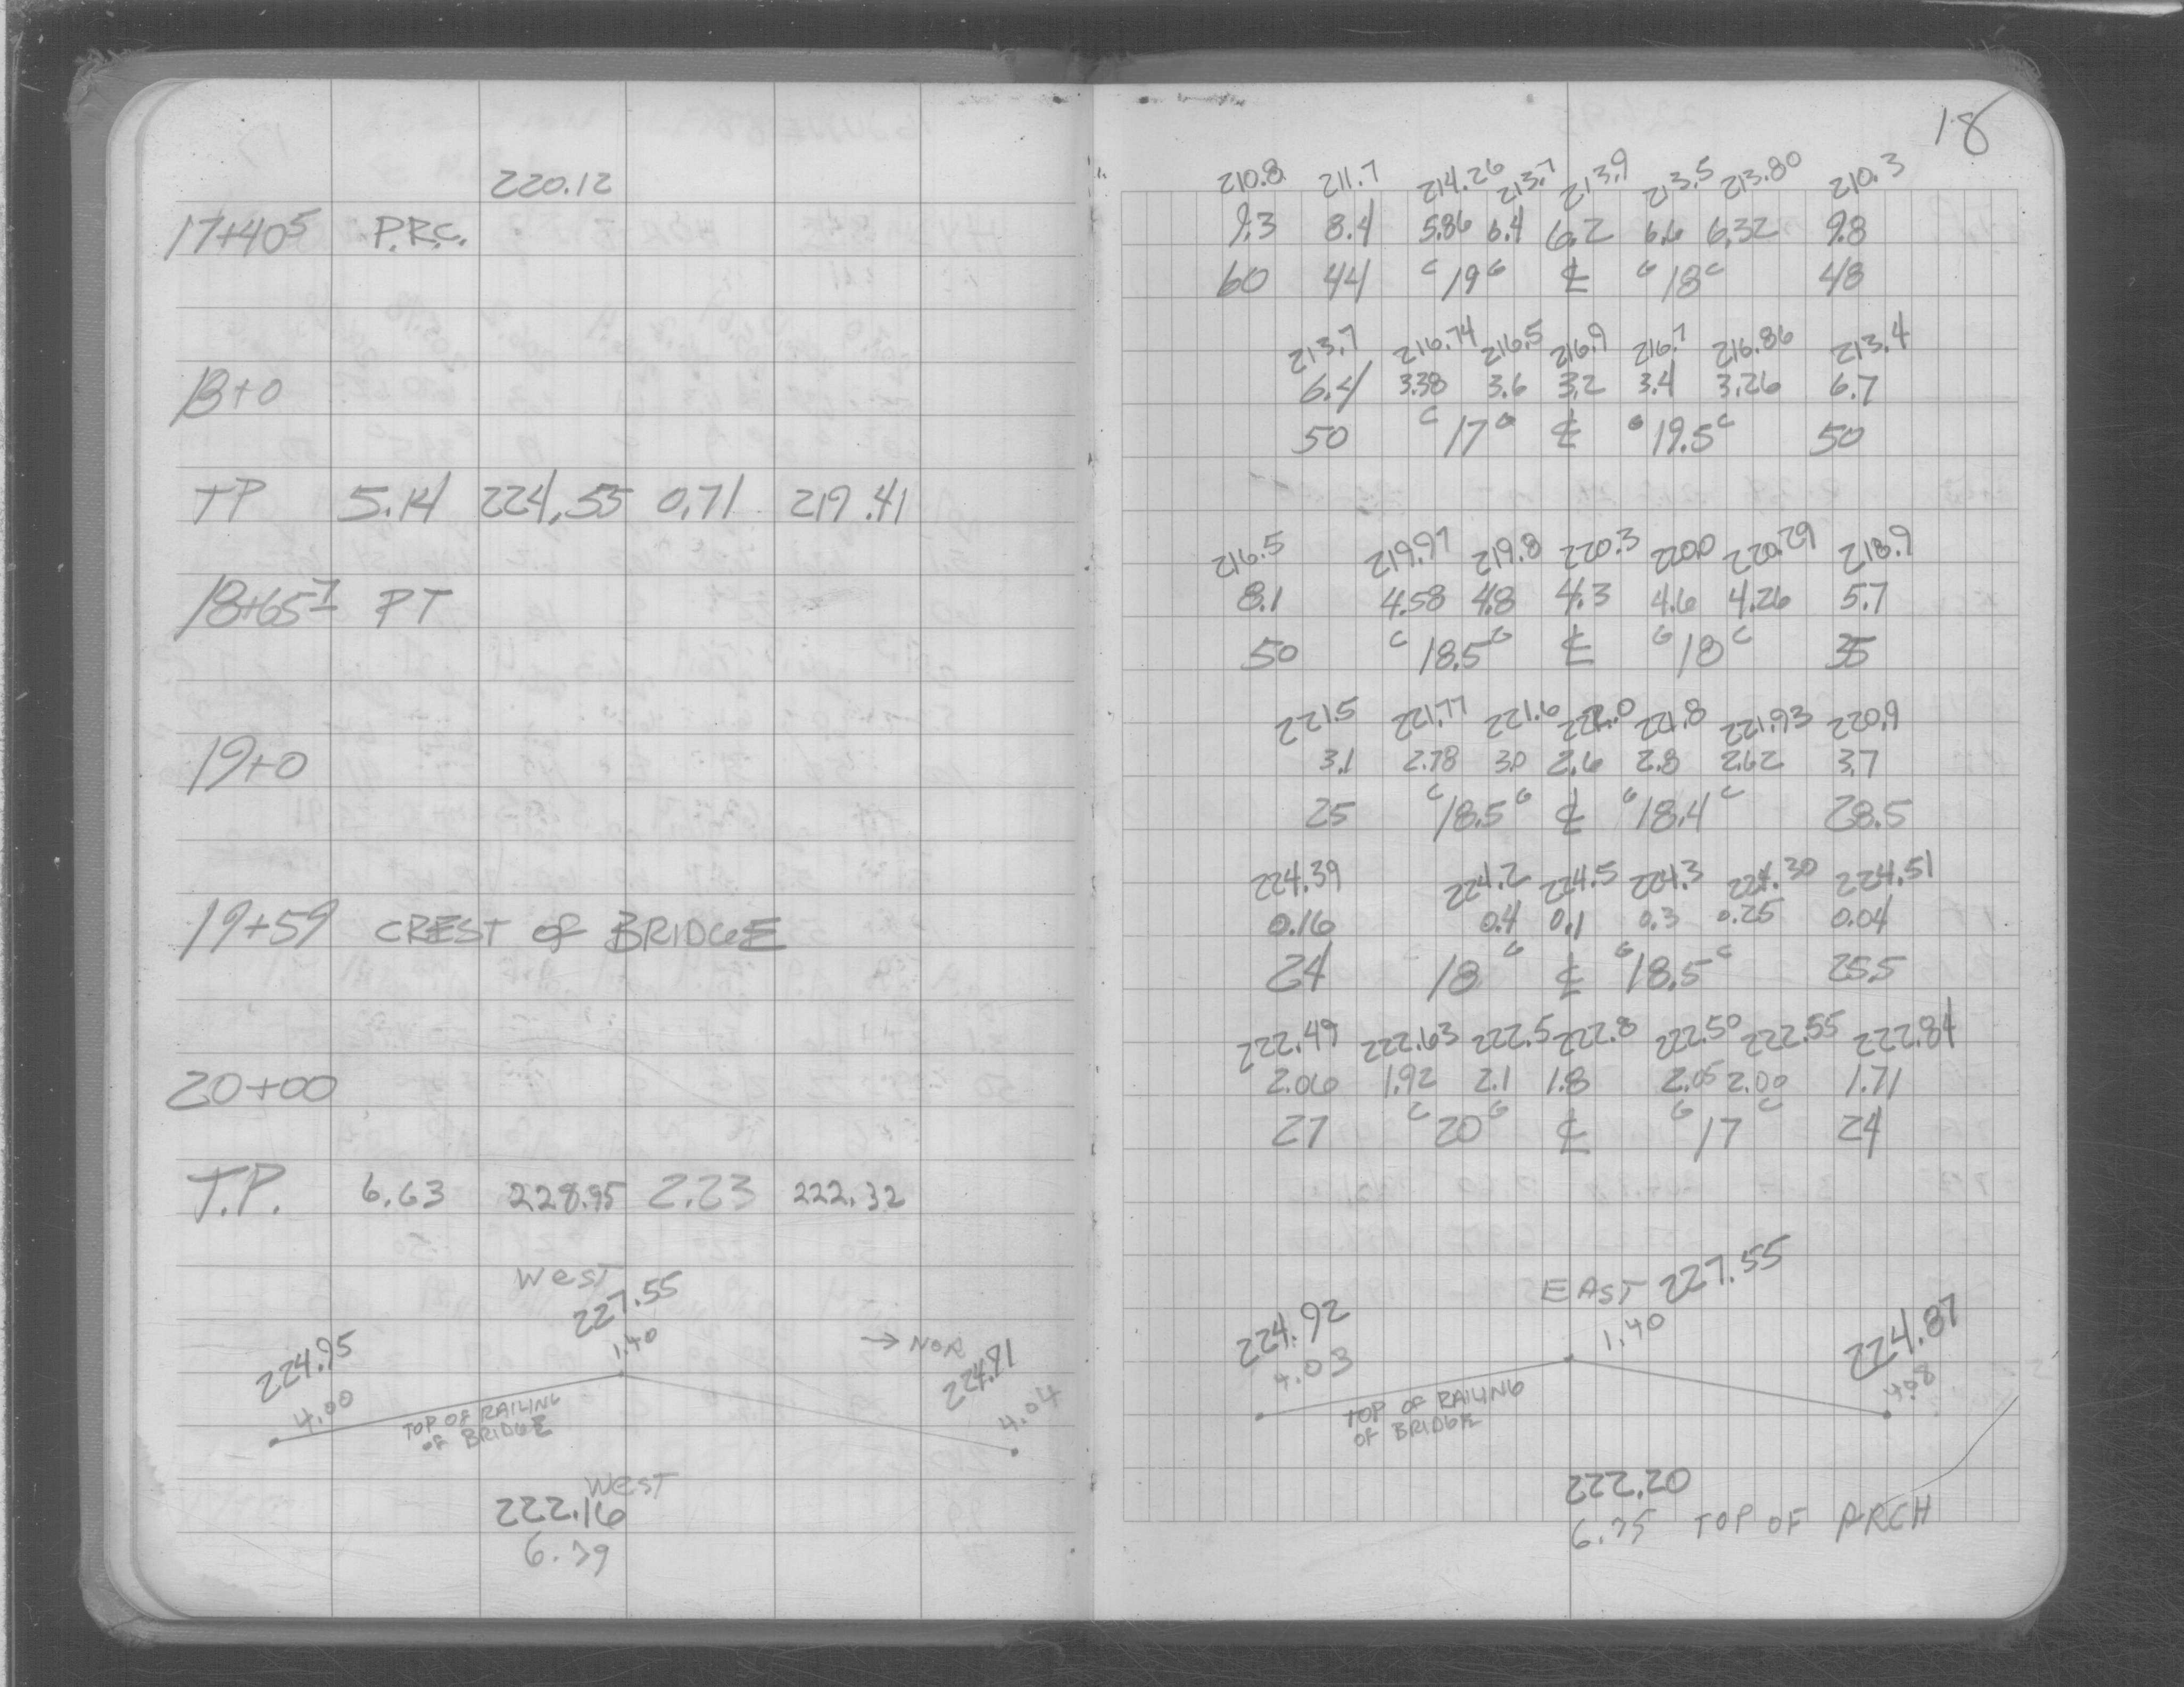 18
220.12
17+40⁵ P.R.C.
18+0
TP 5.14 224.55 0.71 219.41
18+65⁷ PT
19+0
19+59 CREST OF BRIDGE
20+00
T.P. 6.63 228.95 2.23 222.32
West
227.55
1.40
→ NOR
224.95
4.00
224.91
4.04
TOP OF RAILING
OF BRIDGE
West
222.16
6.79
210.8 211.7 214.26 213.7 213.9 213.5 213.80 210.3
9.3 8.4 5.86 6.4 6.2 6.6 6.32 9.8
60 44 C 19 G ℄ G 18 C 48
213.7 216.74 216.5 216.9 216.7 216.86 213.4
6.4 3.38 3.6 3.2 3.4 3.26 6.7
50 C 17 G ℄ G 19.5 C 50
216.5 219.97 219.8 220.3 220.0 220.29 218.9
8.1 4.58 4.8 4.3 4.6 4.26 5.7
50 C 18.5 G ℄ G 18 C 35
221.5 221.77 221.6 222.0 221.8 221.93 220.9
3.1 2.78 3.0 2.6 2.8 2.62 3.7
25 C 18.5 G ℄ G 18.4 C 28.5
224.39 224.2 224.5 224.3 224.30 224.51
0.16 0.4 0.1 0.3 0.25 0.04
24 18 G ℄ G 18.5 C 25.5
222.49 222.63 222.5 222.8 222.50 222.55 222.84
2.06 1.92 2.1 1.8 2.05 2.00 1.71
27 C 20 G ℄ G 17 C 24
EAST 227.55
1.40
224.92
4.03
224.87
4.08
TOP OF RAILING
OF BRIDGE
222.20
6.75 TOP OF ARCH